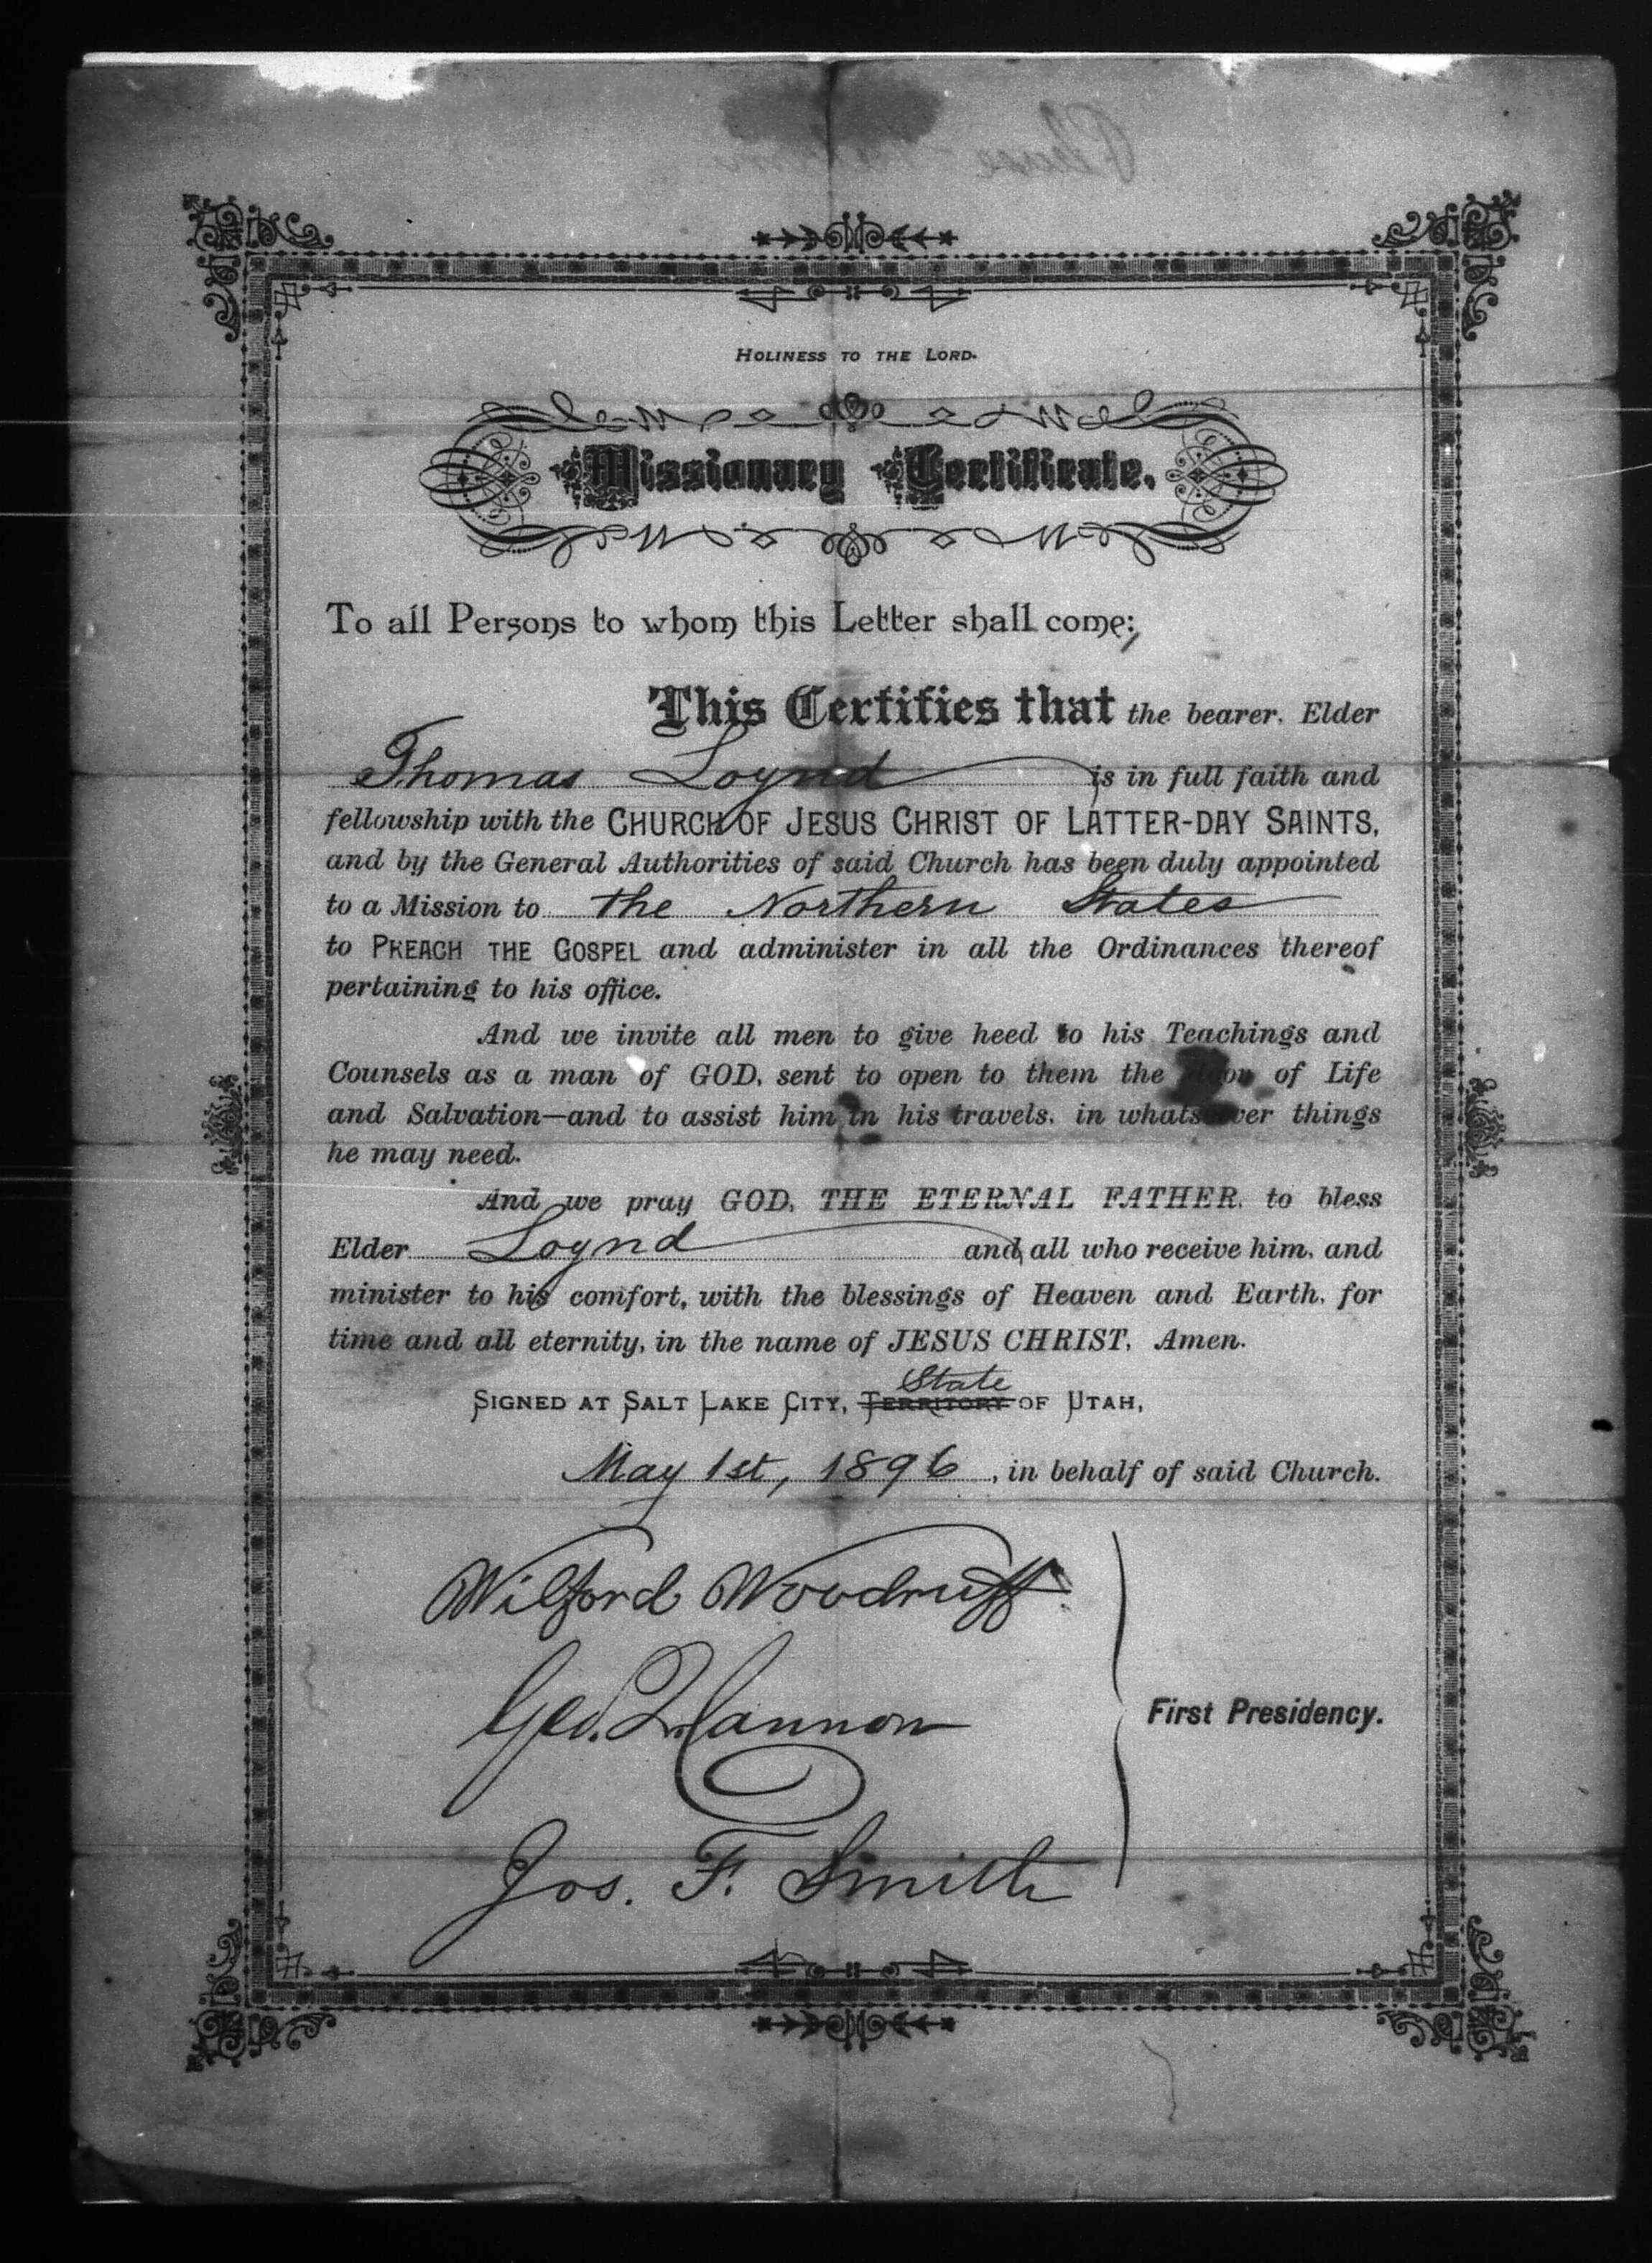 HOLINESS TO THE LORD.
Missionary Certificate.
To all Persons to whom this Letter shall come;
This Certifies that the bearer, Elder
Thomas Loynd is in full faith and
fellowship with the CHURCH OF JESUS CHRIST OF LATTER-DAY SAINTS,
and by the General Authorities of said Church has been duly appointed
to a Mission to the Northern States
to PREACH THE GOSPEL and administer in all the Ordinances thereof
pertaining to his office.
And we invite all men to give heed to his Teachings and
Counsels as a man of GOD, sent to open to them the door of Life
and Salvation—and to assist him in his travels, in whatsoever things
he may need.
And we pray GOD, THE ETERNAL FATHER, to bless
Elder Loynd and all who receive him, and
minister to his comfort, with the blessings of Heaven and Earth, for
time and all eternity, in the name of JESUS CHRIST, Amen.
State
SIGNED AT SALT LAKE CITY, TERRITORY OF UTAH,
May 1st, 1896, in behalf of said Church.
Wilford Woodruff
Geo. Q. Cannon
First Presidency.
Jos. F. Smith